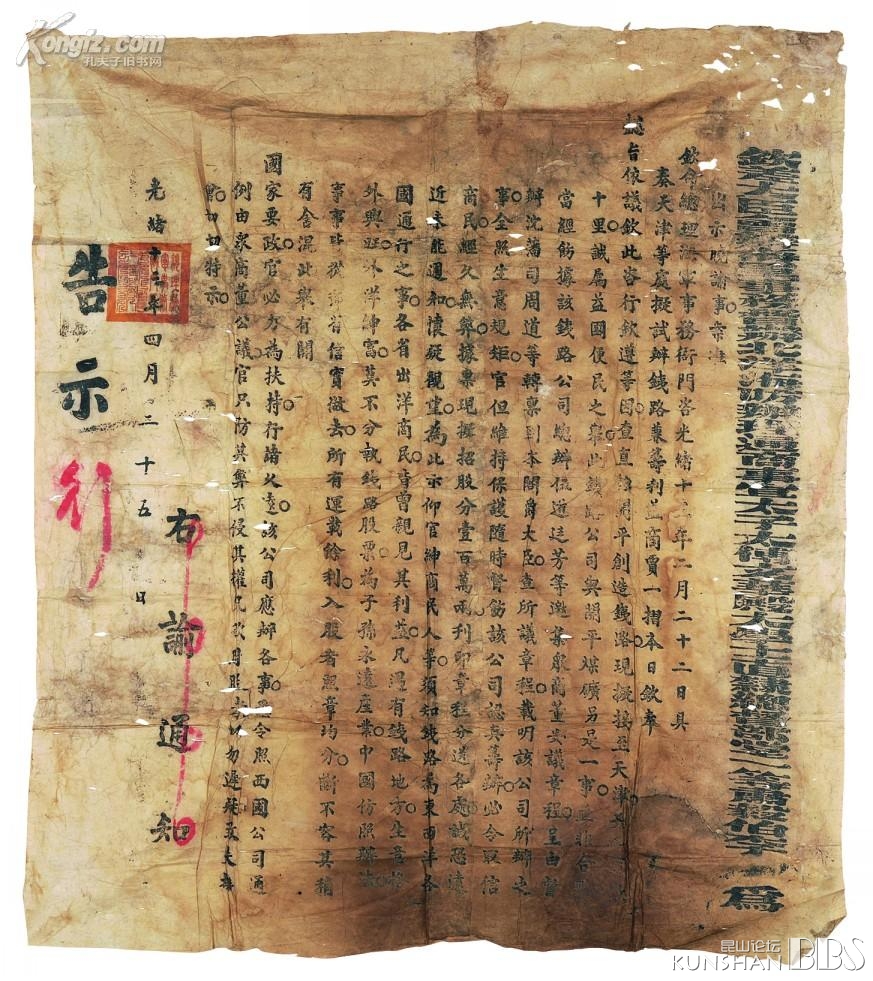 欽差大臣
李
為
出示曉諭事案准
欽命總理海軍事務衙門咨光緒十三年二月二十二日具
奏天津等處擬試辦鐵路兼籌利益商賈一摺本日欽奉
旨依議欽此咨行欽遵等因查直隸開平創造鐵路現擬接至天津
十里誠屬益國便民之舉此鐵路公司與開平煤礦另是一事並非合
當經飭據該鐵路公司總辦伍道廷芳等邀集殷商董妥議章程呈由督
辦沈藩司周道等轉稟到本閣爵大臣查所議章程載明該公司所辦之
事全照生意規矩官但維持保護隨時督飭該公司認真籌辦必令取信
商民經久無弊據票現擬招股分壹百萬兩刊印章程分送各處誠恐遠
近未能週知懷疑觀望為此示仰官紳商民人等須知鐵路為東西洋各
國通行之事各省出洋商民皆曾親見其利益凡遇有鐵路地方生意格
外興旺外洋紳富莫不分執鐵路股票為子孫永遠產業中國仿照辦法
事事皆從節省信實做去所有運載餘利入股者照章均分斷不容其稍
有含混此舉有關
國家要政官必力為扶持行諸久遠該公司應辦各事悉令照西國公司通
例由眾商董公議官只防其弊不侵其權凡欲附股者以勿遲疑
切切特示
右諭通知
光緒十三年四月二十五日
告示
行
Kongfz.com
孔夫子旧书网
昆山论坛
KUNSHAN BBS